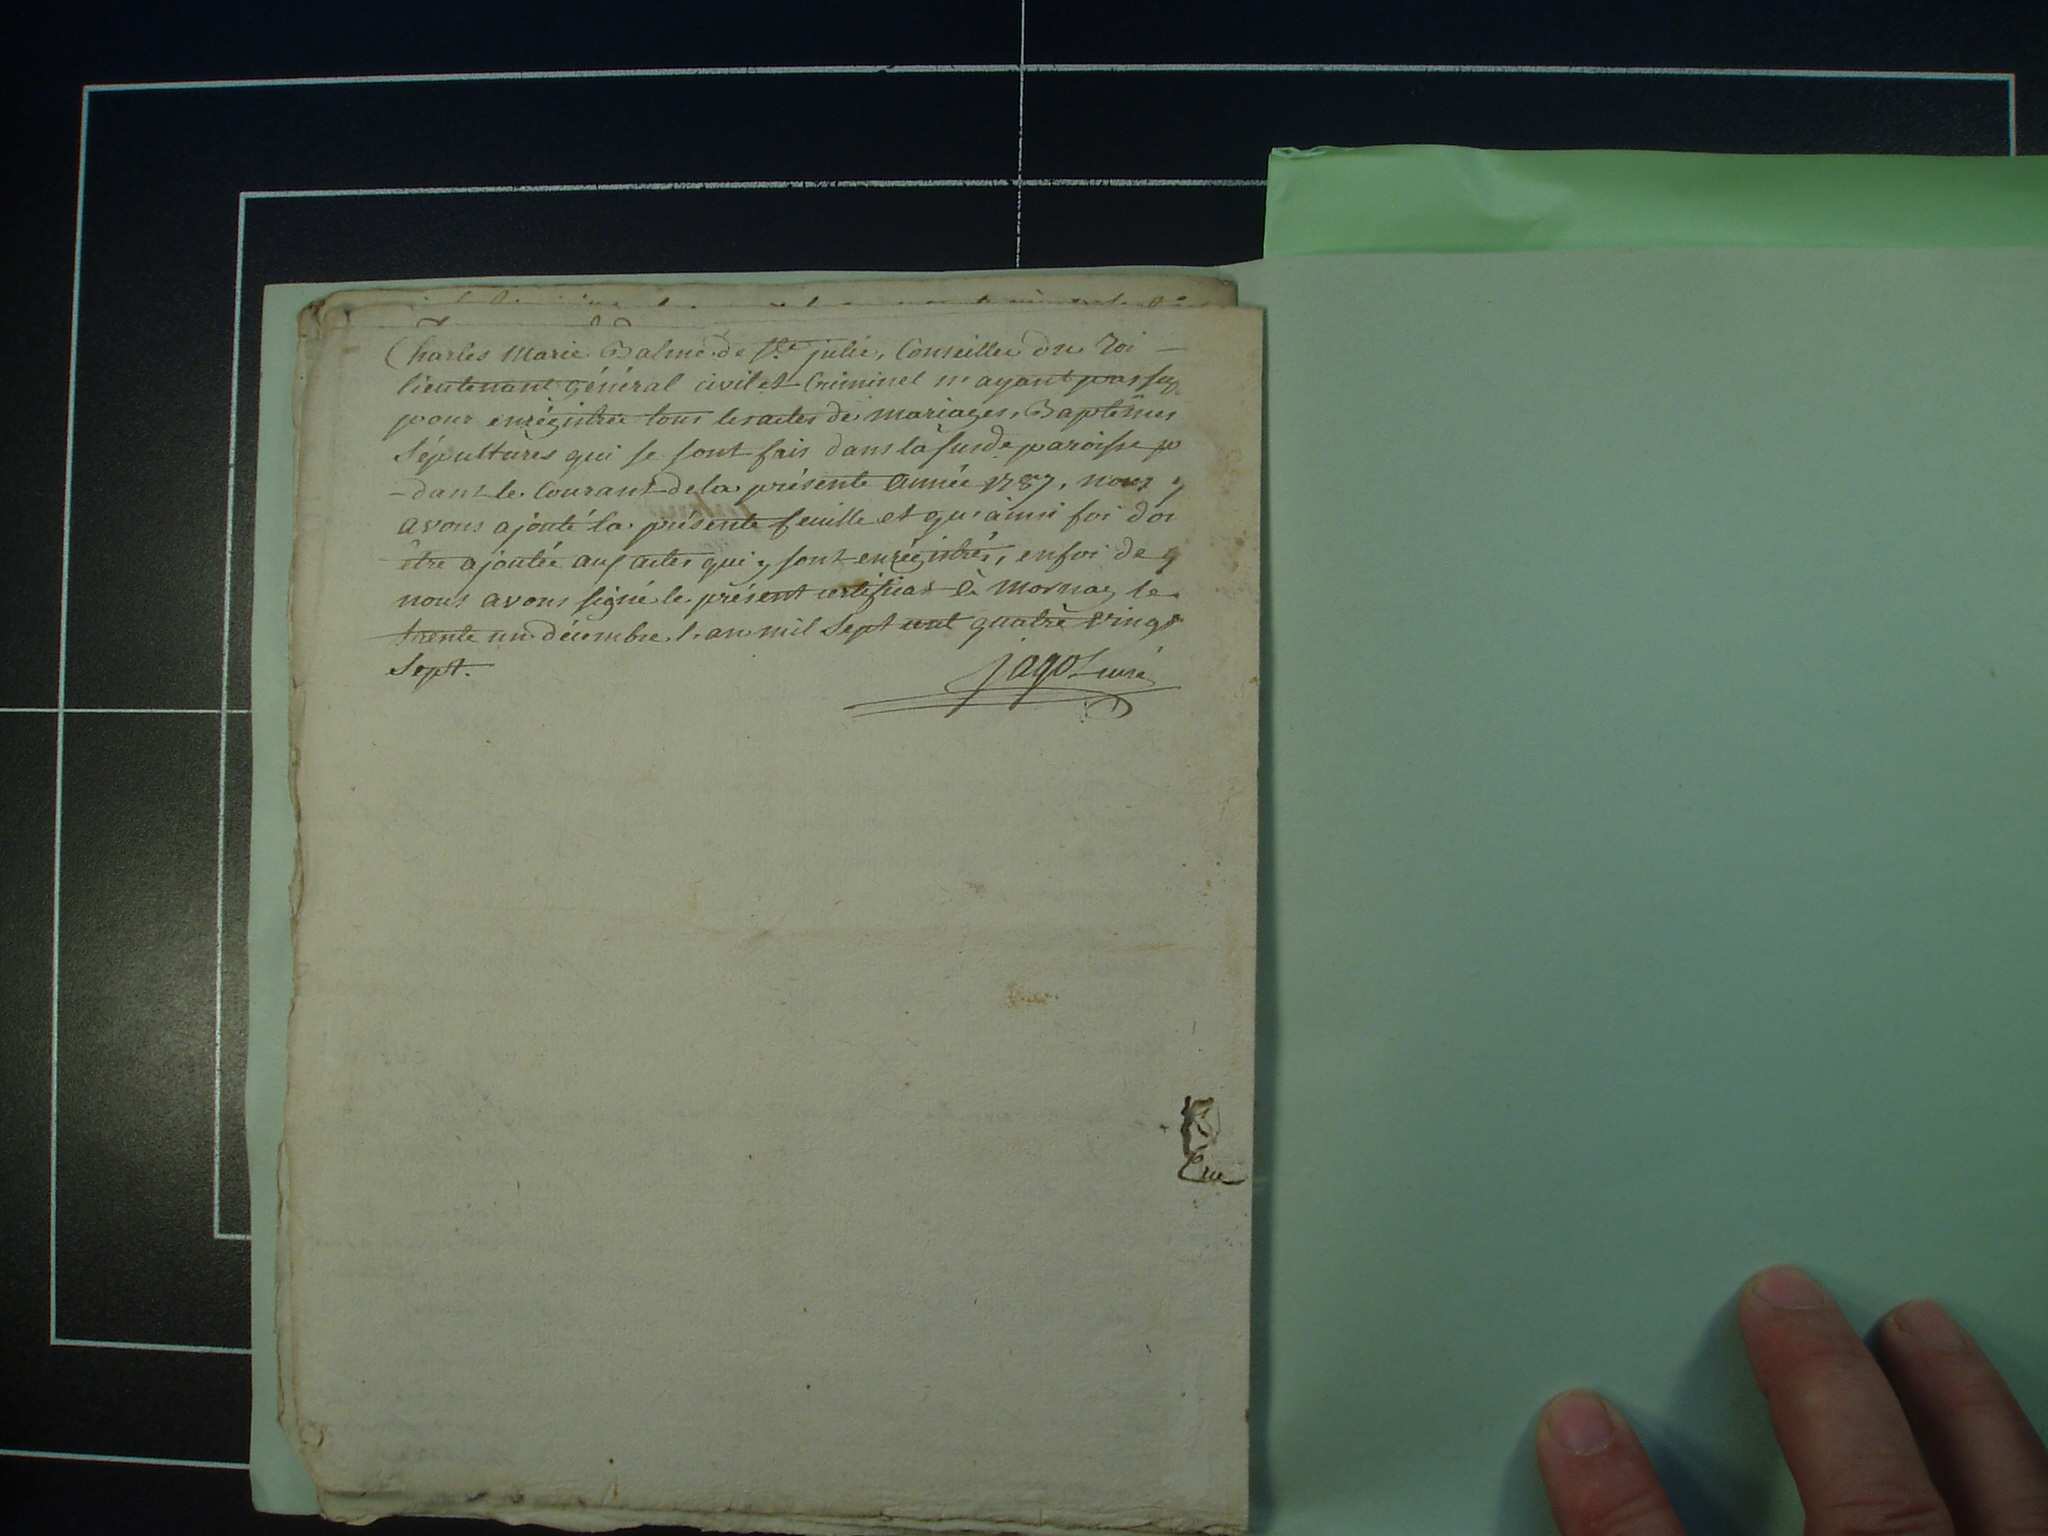 Charles Marie Balme de Ste julie, Conseiller du Roi
lieutenant général civil et Criminel n'ayant pas suf
pour enrégistrer tous les actes de mariages, Baptêmes
Sépultures qui se sont fais dans la susde paroisse p
dans le Courant de la présente année 1787, nous y
avons ajouté la présente feuille et qu'ainsi foi doi
être ajoutée aux actes qui y sont enrégistrés, en foi de q
nous avons signé le présent certificat à Mornay le
trente un décembre l'an mil Sept cent quatre vingt
Sept.
jagot curé